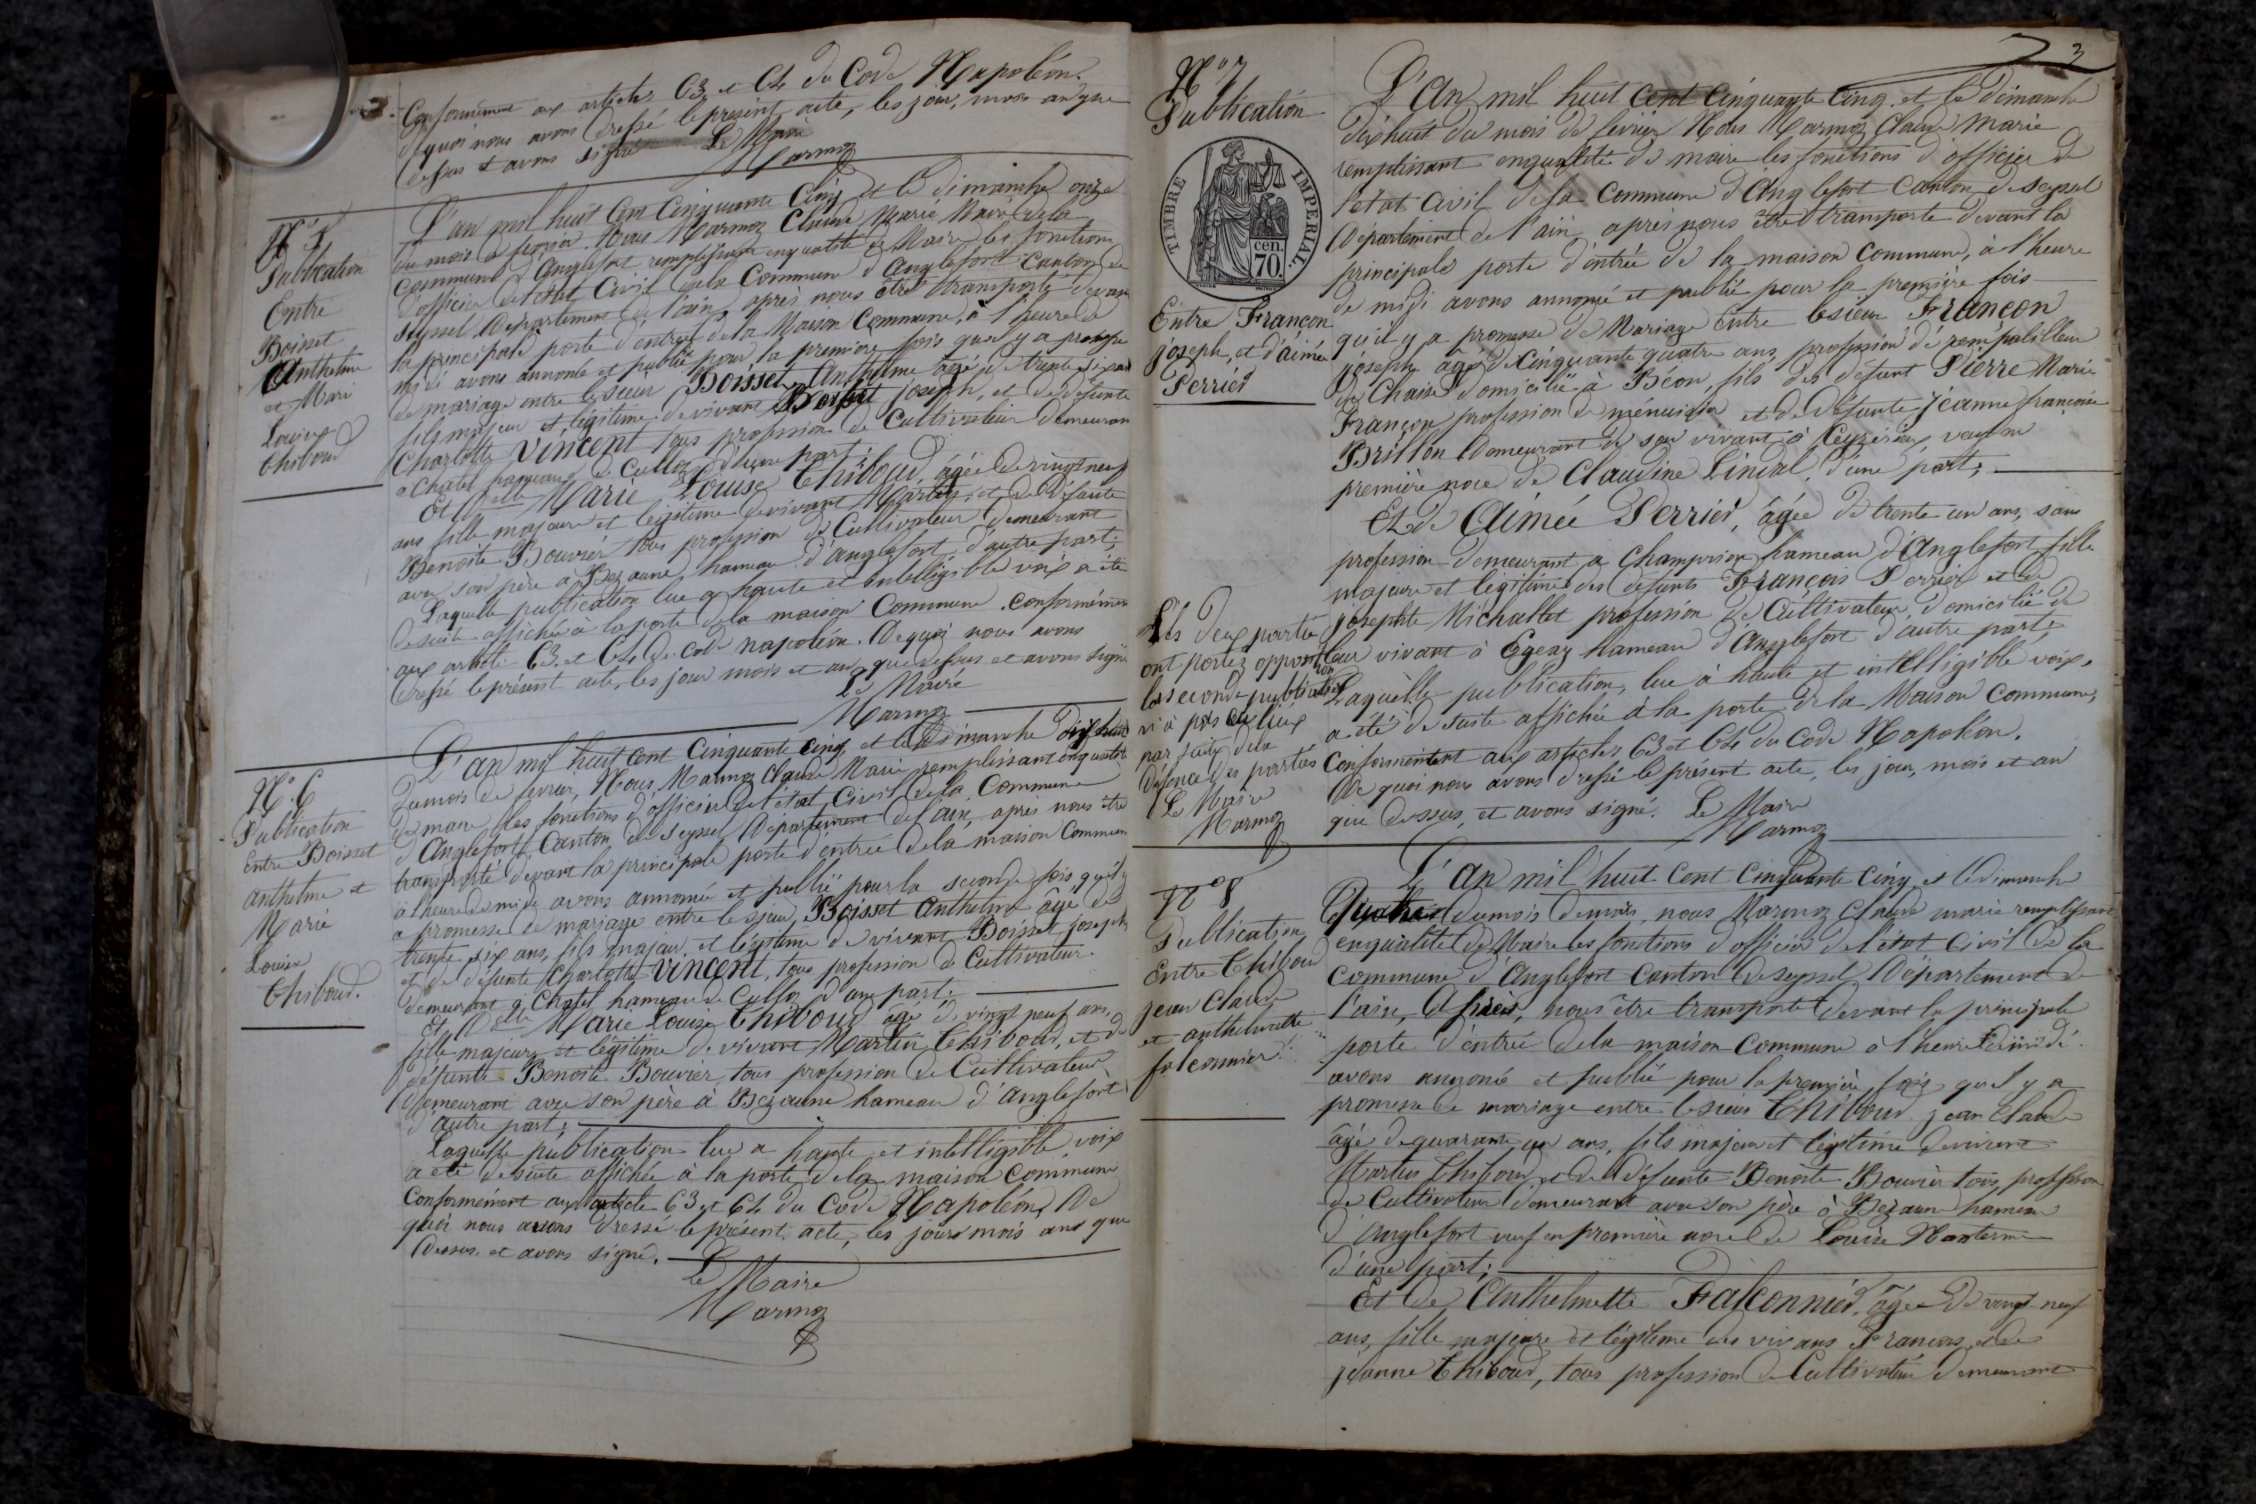 Conformément aux articles 63 et 64 du Code Napoléon.
de quoi nous avons dressé le présent acte, les jour, mois an que
dessus et avons signé Le Maire
Marmoz
N° 5
Publication
Entre
Boisset
Anthelme
et Marie
Louise
Thiboud
L'an mil huit cent cinquante cinq et le dimanche onze
du mois de février Nous Marmoz Claude Marie Maire de la
commune d'Anglefort remplissant enqualité de Maire les fonctions
d'officier de l'état Civil de la Commune d'Anglefort canton de
Seyssel Département de l'ain, après nous être transporté devant
la principale porte d'entrée de la Maison Commune, à l'heure de
midi avons annoncé et publié pour la première fois que y a promesse
de mariage entre le sieur Boisset Anthelme âgé de trente six ans
fils majeur et légitime de vivant Boisset joseph, et de défunte
Charlotte Vincent tous profession de Cultivateur demeurant
à Chatel hameau de Culloz d'une part;
Et delle Marie Louise Thiboud âgée de vingt neuf
ans fille majeure et légitime de vivant Martin, et de défunte
Benoite Bouvier tous profession de Cultivateur demeurant
avec son père à Bezonne hameau d'anglefort, d'autre part;
Laquelle publication lue a haute et intelligible voix a été
de suite affichée à la porte de la maison Commune conformément
aux article 63 et 64 du Code napoléon. De quoi nous avons
dressé le présent acte, les jour mois et an que dessus et avons signé
Le Maire
Marmoz
N° 6
Publication
Entre Boisset
anthelme et
Marie
Louise
Thiboud.
L'an mil huit cent cinquante cinq, et le dimanche dix huit
du mois de fevrier, Nous Marmoz Claude Marie remplissant enqualité
de maire les fonctions d'officier de l'état Civil de la Commune
d'Anglefort Canton de Seyssel Département de l'ain, après nous être
transporté devant la principale porte d'entrée de la maison Commune
à l'heure de midi avons annoncé et publié pour la seconde fois qu'il y
a promesse de mariage entre le sieur Boisset Anthelme âgé de
trente six ans, fils majeur et légitime de vivant Boisset joseph
et de défunte Charlotte Vincent, tous profession de Cultivateur.
demeurant à Chatel hameau de Culloz d'une part;
Et delle Marie Louise Thiboud âgé de vingt neuf ans,
fille majeure et légitime de vivant Martin Thiboud, et de
défunte Benoite Bouvier, tous profession de Cultivateur
demeurant avec son père à Bezonne hameau d'Anglefort
d'autre part;
Laquelle publication lue a haute et intelligible voix
a été de suite affichée à la porte de la maison Commune
Conformément aux article 63 et 64 du Code Napoléon, De
quoi nous avons dressé le présent acte, les jour mois ans que
dessus et avons signé.
Le Maire
Marmoz
3
N° 7
Publication
TIMBRE IMPERIAL.
cen.
70.
Entre Françon
joseph, et d'aimée
Perrier
L'An mil huit cent cinquante cinq et le dimanche
dixhuit du mois de fevrier Nous Marmoz Claude Marie
remplissant enqualité de maire les fonctions d'officier de
l'état Civil de la Commune d'Anglefort Canton de Seyssel
Département de l'ain, après nous être transporté devant la
principale porte d'entrée de la maison commune, à l'heure
de midi avons annoncé et publié pour la première fois
qu'il y a promesse de Mariage Entre le sieur Françon
joseph âgé de cinquante quatre ans profession de rempailleur
de Chaise domicilié à Béon, fils des défunt Pierre Marie
Françon profession de menuisier et de défunte jeanne françoise
Brillon demeurant de son vivant à Ceyzérieu veuf en
première noce de Claudine Lindal, d'une part;
Et de Aimée Perrier, âgée de trente un ans, sans
profession demeurant a Champrion hameau d'Anglefort fille
majeure et légitime des défunts François Perrier et de
josephte Michallet profession de Cultivateur, domicilié de
leur vivant à Egezy hameau d'Anglefort d'autre part;
Laquelle publication, lue à haute et intelligible voix,
a été de suite affichée à la porte de la Maison Commune,
Conformément aux articles 63 et 64 du Code Napoléon.
De quoi nous avons dressé le présent acte, les jour, mois et an
que dessus, et avons signé. Le Maire
Marmoz
Les deux partie
ont portez opposition
la seconde publication
n'à pas eu lieu
par suite de la
défence des parties
Le Maire
Marmoz
N° 8
Publication
Entre Thiboud
jean Claude
et anthelmette
falconnier.
L'an mil huit cent cinquante cinq et le dimanche
Quatre du mois de mars, nous Marmoz Claude marie remplissant
enqualité de Maire les fonctions d'officier de l'état Civil de la
commune d'Anglefort Canton de seyssel Département de
l'ain, Après, nous être transporté devant la principale
porte d'entrée de la maison Commune à l'heure de midi
avons annoncé et publié pour la première fois qu'il y a
promesse de mariage entre le sieur Thiboud jean Claude
âgé de quarante un ans, fils majeur et légitime de vivant
Martin Thiboud, et de défunte Benoite Bouvier tous profession
de Cultivateur demeurant avec son père à Bezonne hameau
d'Anglefort veuf en première noce de Louise Nanterme
d'une part;
Et de Anthelmette Falconnier, âgée de vingt neuf
ans, fille majeure et légitime des vivans François et de
jeanne Thiboud, tous profession de Cultivateur demeurant